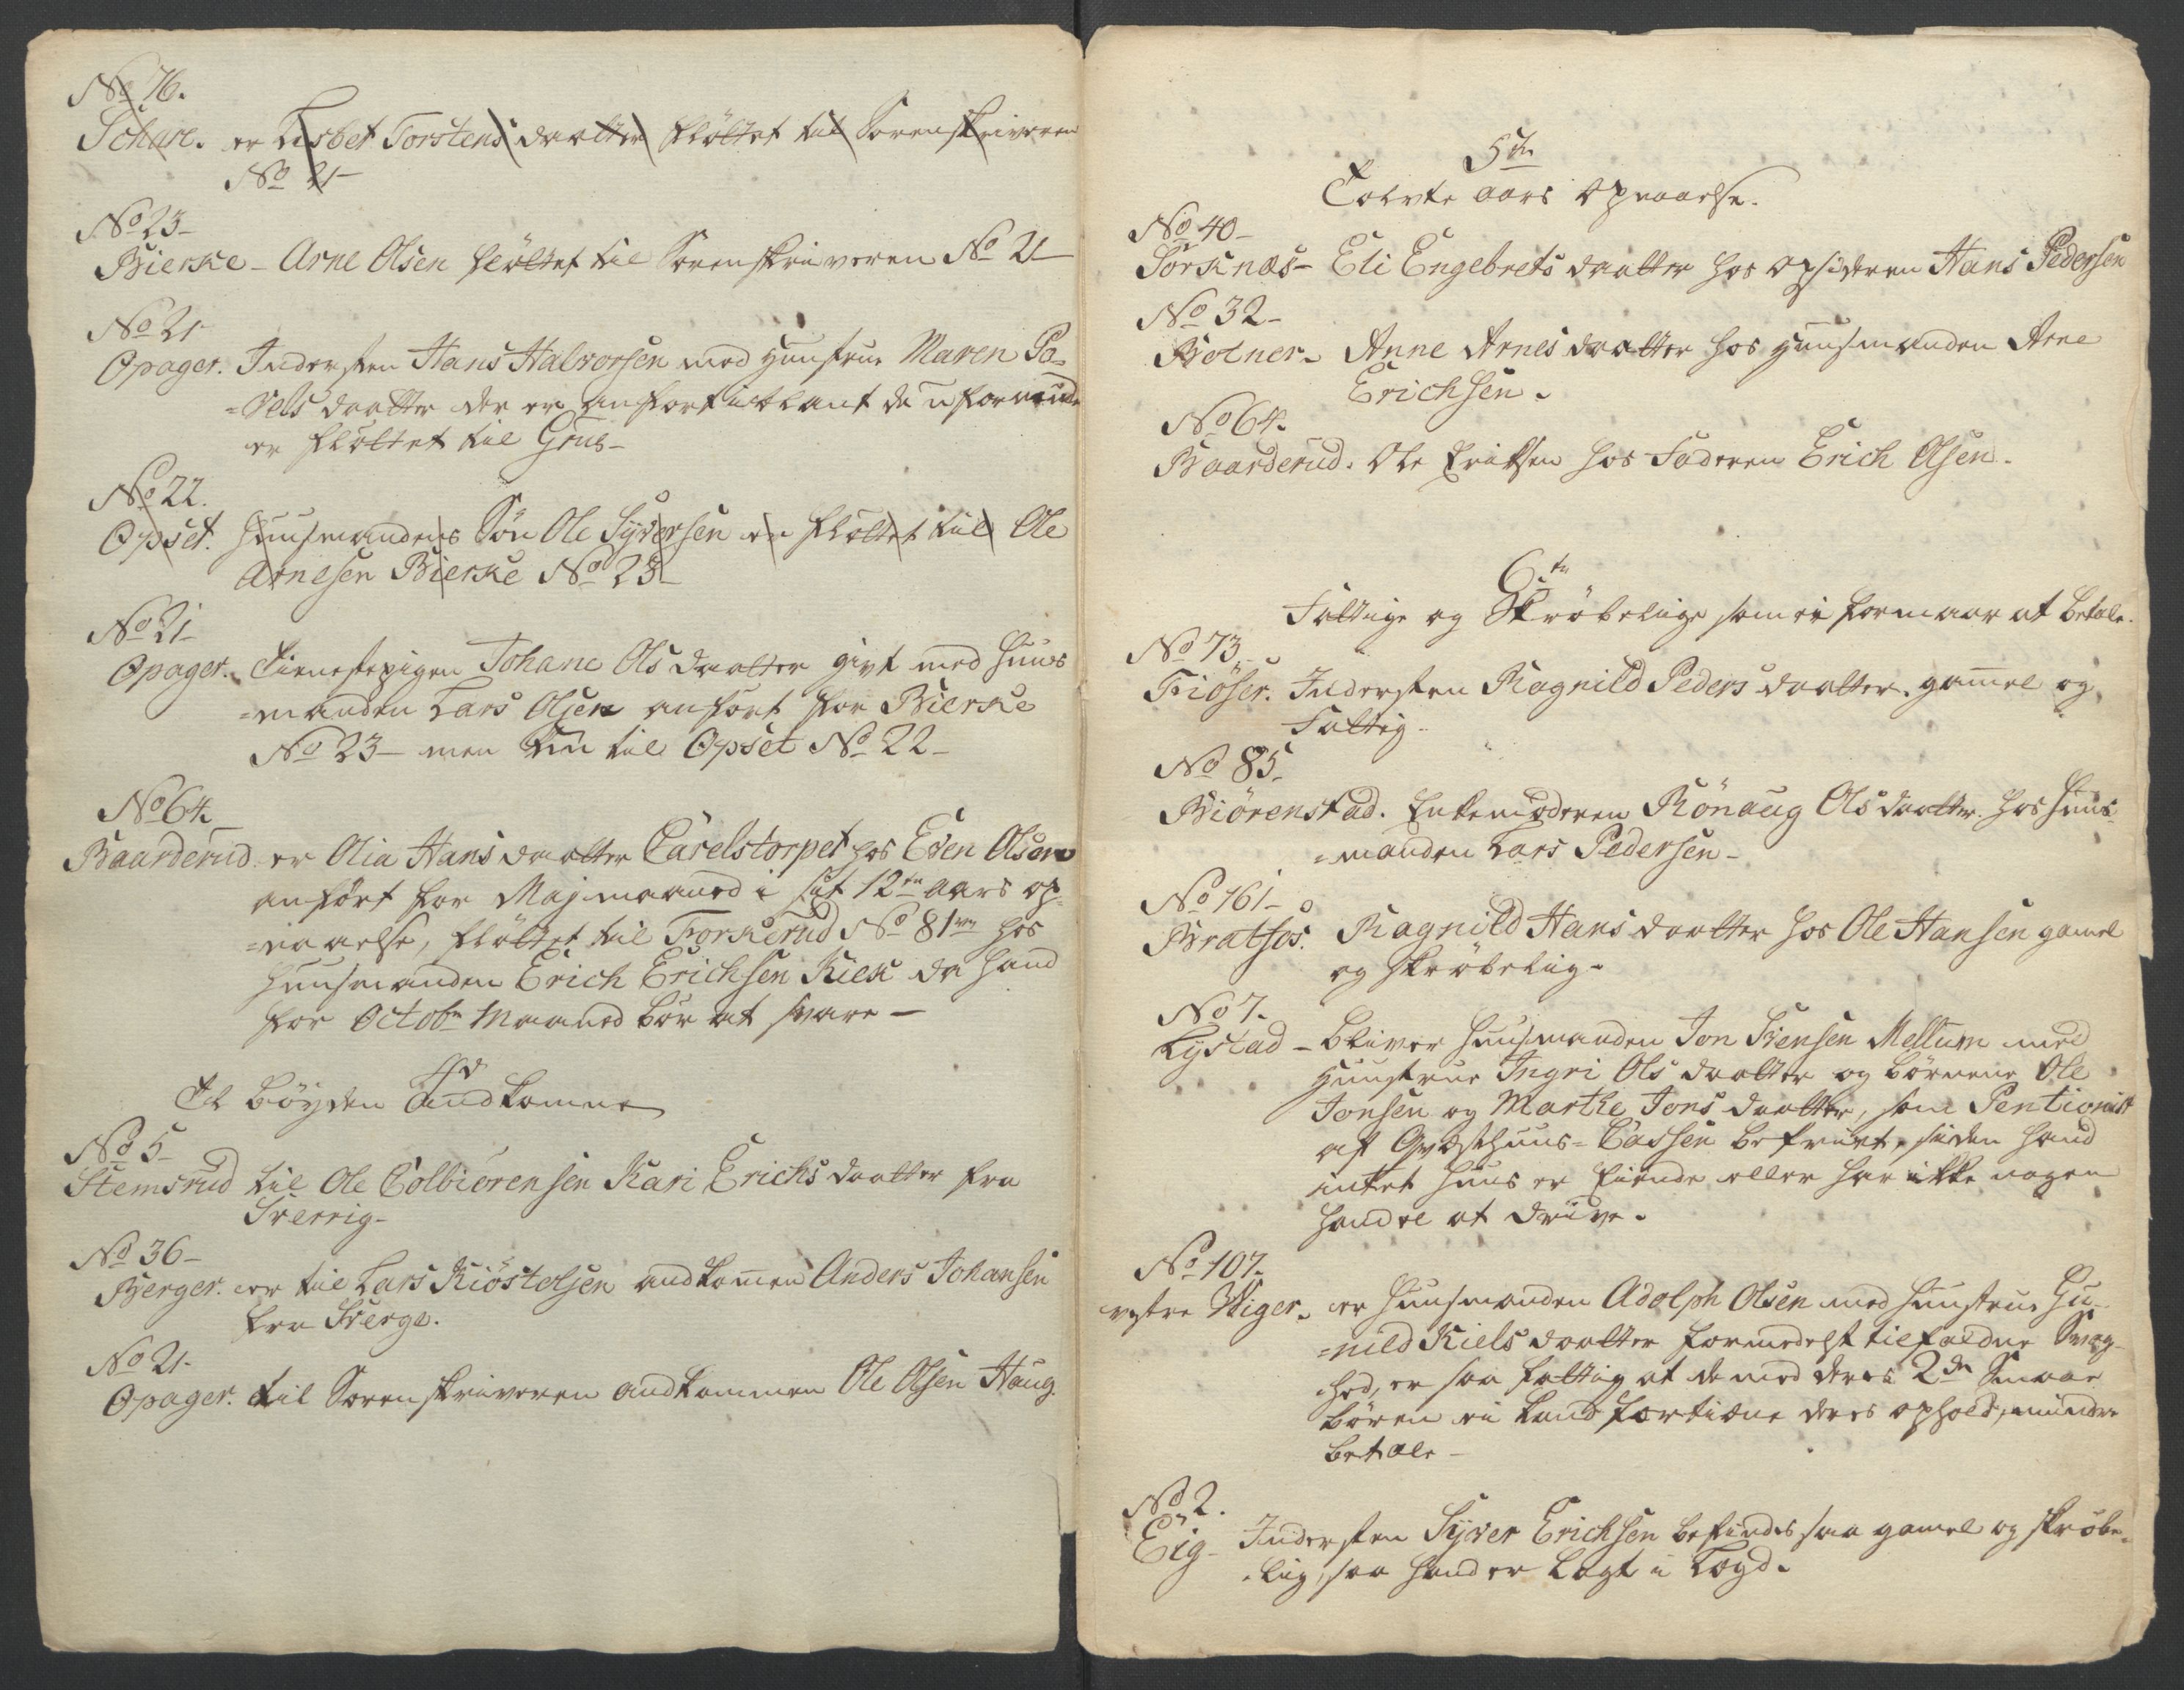 No 76.
Schare. er Lisbet Torstens daatter fløttet til Sorenskriveren
No 21-
No 23-
Bierke - Arne Olsen fløttet til Sorenskriveren No 21-
No 21
Opager. Indersten Hans Halvorsen med Hustrue Maren Po-
=vels daatter der er anført iblant de uformuende
er fløttet til Grue-
No 22.
Opset. Huusmandens Søn Ole Syversen er fløttet til Ole
Arnesen Bierke No 23-
No 21-
Opager. Tienestepigen Johane Ols daatter givt med Huus
=manden Lars Olsen anført for Bierke
No 23- men nu til Opset No 22-
No 64
Baarderud er Olia Hans daatter Carelstorpet hos Even Olsen
anført for Maj maaned i sit 12te aars op
=naaelse, fløttet til Forkerud No 81 hos
Huusmanden Erich Erichsen Kiek da hand
for Octobr Maaned bør at svare -
4de
Til bøyden andkomne
No 5-
Stemsrud til Ole Colbiörensen Kari Erichs daatter fra
Sverrig-
No 36-
Berger. er til Lars Kiöstelsen andkomen Anders Johansen
fra Sverge.
No 21-
Opager. til Sorenskriveren andkommen Ole Olsen Haug.
5te
Tolvte aars Opnaaelse.
No 40-
Sorknæs- Eli Engebrets daatter hos Opsideren Hans Pedersen
No 32-
Bolner- Anne Arnes daatter hos Huusmanden Arne
Erichsen.
No 64.
Baarderud. Ole Eriksen hos Faderen Erich Olsen.
6te
Fattige og Skrøbelige som ei formaar at betale.
No 73
Fiöser. Indersten Ragnild Peders daatter. gamel og
Fattig-
No 85-
Biörenstad. Enkemoderen Rönaug Ols daatter. hos Huus-
=manden Lars Pedersen-
No 161-
Bratfos. Ragnild Hans daatter hos Ole Hansen gamel
og skrøbelig-
No 7.
Lystad - bliver Huusmanden Jon Svensen Mellum med
Huustrue Ingri Ols daatter og børnene Ole
Jonsen og Marthe Jons daatter, som Pentionist
af Qvæsthuus-Cassen befriet, siden hand
intet Huus er Eiende eller har ikke nogen
handel at drive.
No 107.
vestre Wiger. er Huusmanden Adolph Olsen med Huustrue Gu-
=nild Kiels daatter formedelst tilfældne Svag-
hed, er saa fattig at de med deres 2de Smaae
børen ei kand fortiene deres ophold, mindre
betale-
No 2.
Eig- Indersten Syver Erichsen befindes saa gamel og skrøbe-
-lig, saa hand er Lagt i Lægd.